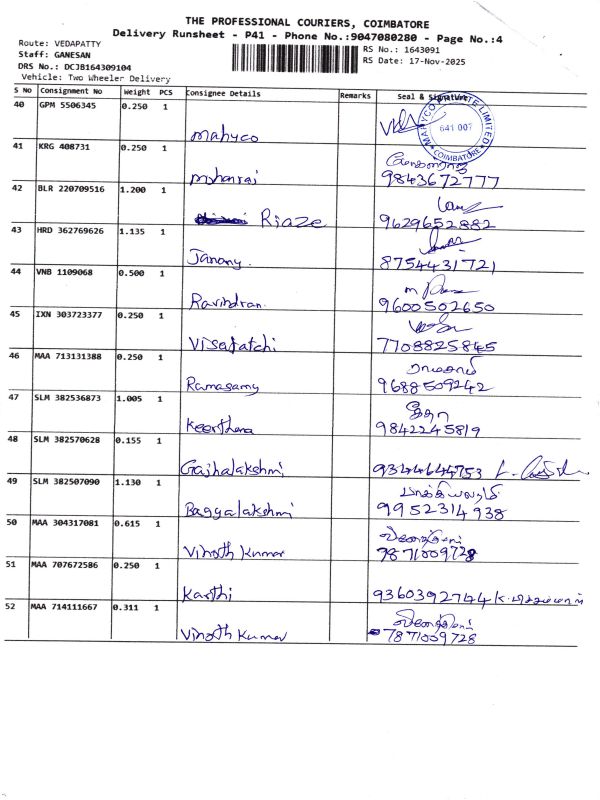 THE PROFESSIONAL COURIERS, COIMBATORE
Delivery Runsheet - P41 - Phone No.:9047080280 - Page No.:4
Route: VEDAPATTY
RS No.: 1643091
Staff: GANESAN
RS Date: 17-Nov-2025
DRS No.: DCJB164309104
Vehicle: Two Wheeler Delivery
S No Consignment No Weight PCS Consignee Details Remarks Seal & Signature
40 GPM 5506345 0.250 1
Mahyco
MAHYCO PRIVATE LIMITED
641 007
COIMBATORE
41 KRG 408731 0.250 1
Mohanraj 9843672777
42 BLR 220709516 1.200 1
Riaze 9629652882
43 HRD 362769626 1.135 1
Janany. 8754431721
44 VNB 1109068 0.500 1
Ravindran. 9600502650
45 IXN 303723377 0.250 1
Visalatchi 7708825845
46 MAA 713131388 0.250 1
ராமசாமி
Ramasamy 9688509242
47 SLM 382536873 1.005 1
Keerthana 9842245819
48 SLM 382570628 0.155 1
Gajhalakshmi 9344644753
49 SLM 382507090 1.130 1
Baggalakshmi 9952314938
50 MAA 304317081 0.615 1
Vinoth Kumar 7871009728
51 MAA 707672586 0.250 1
Karthi 9360392744
52 MAA 714111667 0.311 1
Vinoth Kumar 7871009728